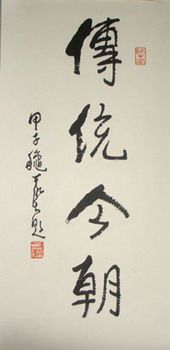 傳統今朝
甲子